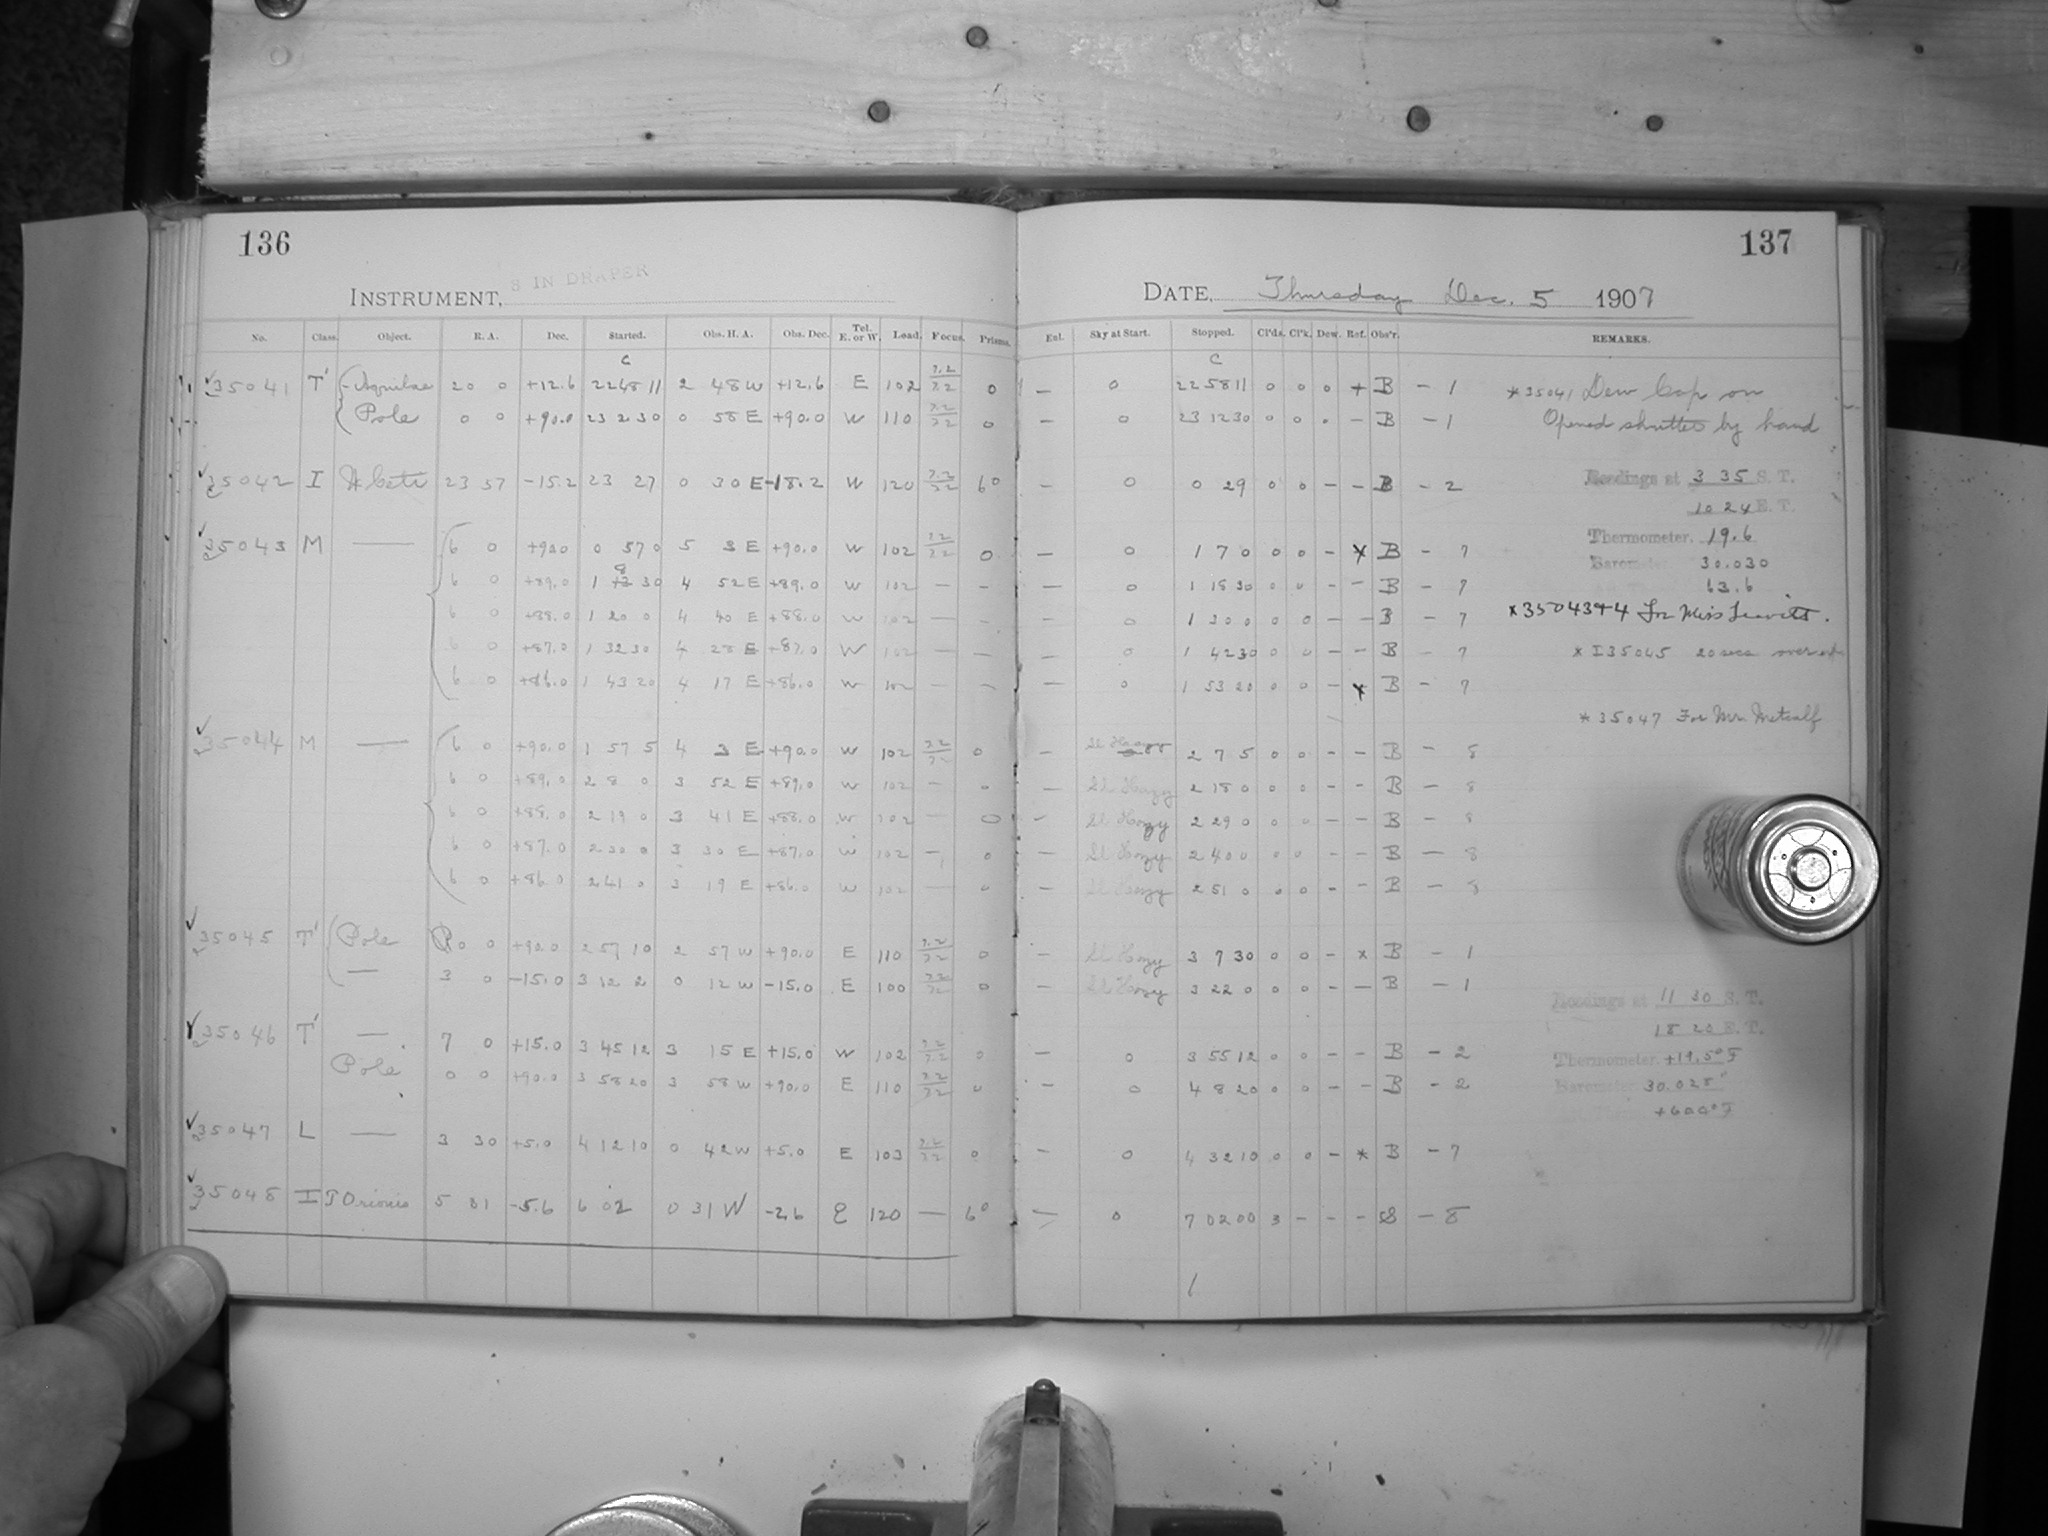 136
8 IN DRAPER
INSTRUMENT,
No. Class. Object. R. A. Dec. Started. Obs. H. A. Obs. Dec. Tel. E. or W. Load. Focus. Prisms.
C
35041 T' - Aquilae 20 0 +12.6 22 48 11 2 48 W +12.6 E 102 0
Pole 0 0 +90.0 23 2 30 0 58 E +90.0 W 110 0
35042 I W Ceti 23 57 -15.2 23 27 0 30 E -18.2 W 120 6°
35043 M — 6 0 +90.0 0 57 0 5 3 E +90.0 W 102 0
6 0 +89.0 1 8 30 4 52 E +89.0 W 102 — —
6 0 +88.0 1 20 0 4 40 E +88.0 W 102 — —
6 0 +87.0 1 32 30 4 28 E +87.0 W 102 — —
6 0 +86.0 1 43 20 4 17 E +86.0 W 102 — —
35044 M — 6 0 +90.0 1 57 5 4 3 E +90.0 W 102 0
6 0 +89.0 2 8 0 3 52 E +89.0 W 102 — 0
6 0 +88.0 2 19 0 3 41 E +88.0 W 102 — 0
6 0 +87.0 2 30 0 3 30 E +87.0 W 102 — 0
6 0 +86.0 2 41 0 3 19 E +86.0 W 102 — 0
35045 T' Pole 0 0 +90.0 2 57 10 2 57 W +90.0 E 110 0
— 3 0 -15.0 3 12 2 0 12 W -15.0 E 100 0
35046 T' — 7 0 +15.0 3 45 12 3 15 E +15.0 W 102 0
Pole 0 0 +90.0 3 58 20 3 58 W +90.0 E 110 0
35047 L — 3 30 +5.0 4 12 10 0 42 W +5.0 E 103 0
35048 I T Orionis 5 31 -5.6 6 02 0 31 W -2.6 E 120 — 6°
137
DATE, Thursday Dec. 5 1907
Enl. Sky at Start. Stopped. Cl'ds. Cl'k. Dew. Ref. Obs'r. REMARKS.
C
— 0 22 58 11 0 0 0 + B - 1
— 0 23 12 30 0 0 . - B - 1
— 0 0 29 0 0 - - B - 2
— 0 1 7 0 0 0 - x B - 7
— 0 1 18 30 0 0 - - B - 7
— 0 1 30 0 0 0 - - B - 7
— 0 1 42 30 0 0 - - B - 7
— 0 1 53 20 0 0 - x B - 7
— Sl Hazy 2 7 5 0 0 - - B - 8
— Sl Hazy 2 18 0 0 0 - - B - 8
— Sl Hazy 2 29 0 0 0 - - B - 8
— Sl Hazy 2 40 0 0 0 - - B - 8
— Sl Hazy 2 51 0 0 0 - - B - 8
— Sl Hazy 3 7 30 0 0 - x B - 1
— Sl Hazy 3 22 0 0 0 - - B - 1
— 0 3 55 12 0 0 - - B - 2
— 0 4 8 20 0 0 - - B - 2
— 0 4 32 10 0 0 - * B - 7
— 0 7 02 00 3 - - - S - 8
*35041 Dew Cap on
Opened shutter by hand
Readings at 3 35 S. T.
10 24 E. T.
Thermometer. 19.6
Barometer 30.030
63.6
x35043+4 For Miss Leavitt.
* I35045 20 secs over
*35047 For Mr. Metcalf
Readings at 11 30 S. T.
18 20 E. T.
Thermometer. +19.5° F
Barometer 30.028"
+60.0° F